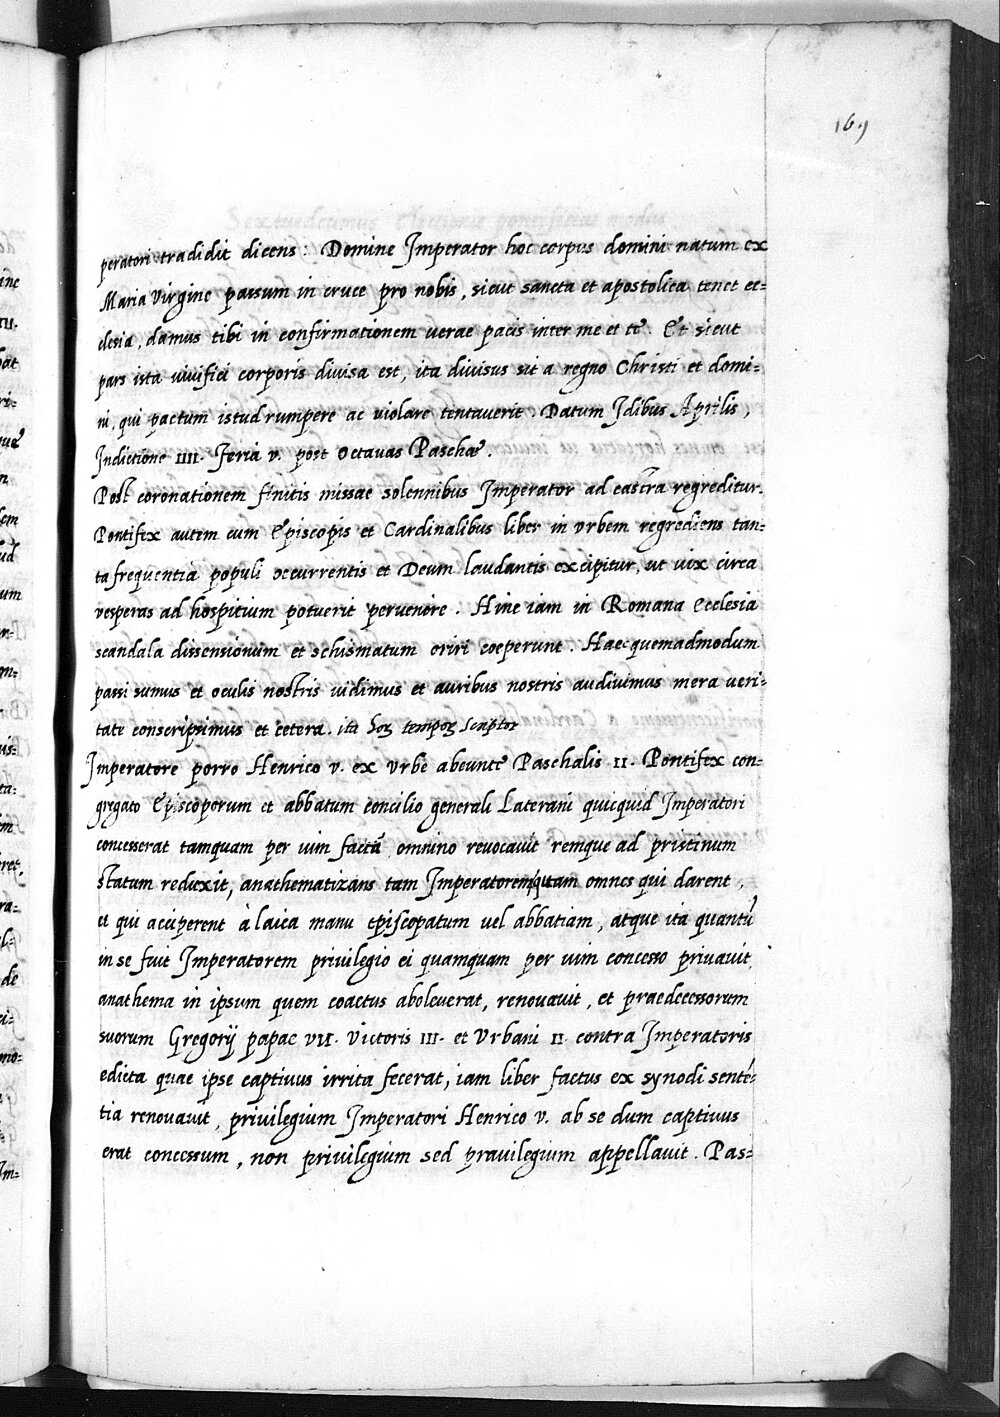 169
peratori tradidit dicens: Domine Imperator hoc corpus domini natum ex
Maria Virgine passum in cruce pro nobis, sicut sancta et apostolica tenet ec=
clesia, damus tibi in confirmationem verae pacis inter me et te. Et sicut
pars ista vivifici corporis divisa est, ita divisus sit a regno Christi et domi=
ni, qui pactum istud rumpere ac violare tentaverit. Datum Idibus Aprilis,
Indictione IIII. Feria v. post Octavas Paschae.
Post coronationem finitis missae solennibus Imperator ad castra regreditur.
Pontifex autem cum Episcopis et Cardinalibus liber in urbem regrediens tan=
ta frequentia populi occurrentis et Deum laudantis excipitur, ut vix circa
vesperas ad hospitium potuerit pervenire. Hinc iam in Romana Ecclesia
scandala dissensionum et schismatum oriri coeperunt. Haec quemadmodum
passi sumus et oculis nostris vidimus et auribus nostris audivimus mera veri=
tate conscripsimus et cetera. ita hoꝝ tempoꝝ scriptor
Imperatore porro Henrico v. ex Urbe abeunte Paschalis II. Pontifex con=
gregato Episcoporum et abbatum concilio generali Laterani quicquid Imperatori
concesserat tamquam per vim factū omnino revocavit remque ad pristinum
statum reduxit, anathematizans tam Imperatorem quam omnes qui darent,
et qui acciperent à laica manu episcopatum vel abbatiam, atque ita quantū
in se fuit Imperatorem privilegio ei quamquam per vim concesso privavit,
anathema in ipsum quem coactus aboleverat, renovavit, et praedecessorum
suorum Gregorij papae VII. Victoris III. et Urbani II. contra Imperatoris
edicta quae ipse captivus irrita fecerat, iam liber factus ex synodi sentē=
tia renovavit, privilegium Imperatori Henrico v. ab se dum captivus
erat concessum, non privilegium sed pravilegium appellavit. Pas=